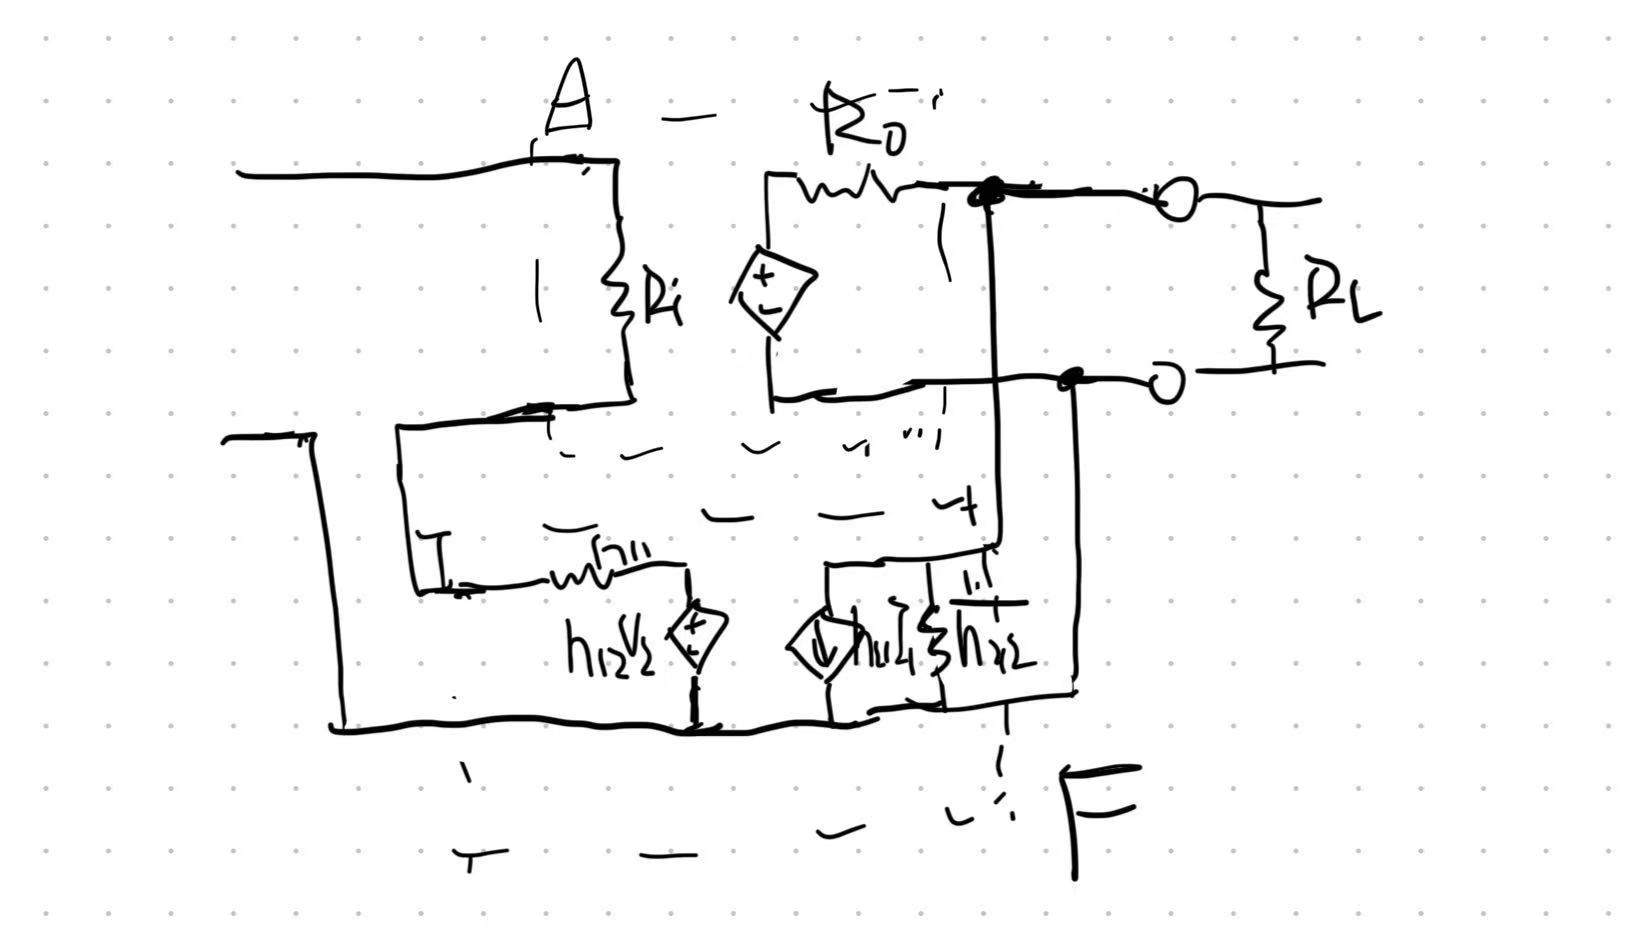 A
R₀
+
-
Ri
RL
h₁₁
h₁₂V₂
+
-
h₂₁I₁
1
h₂₂
F